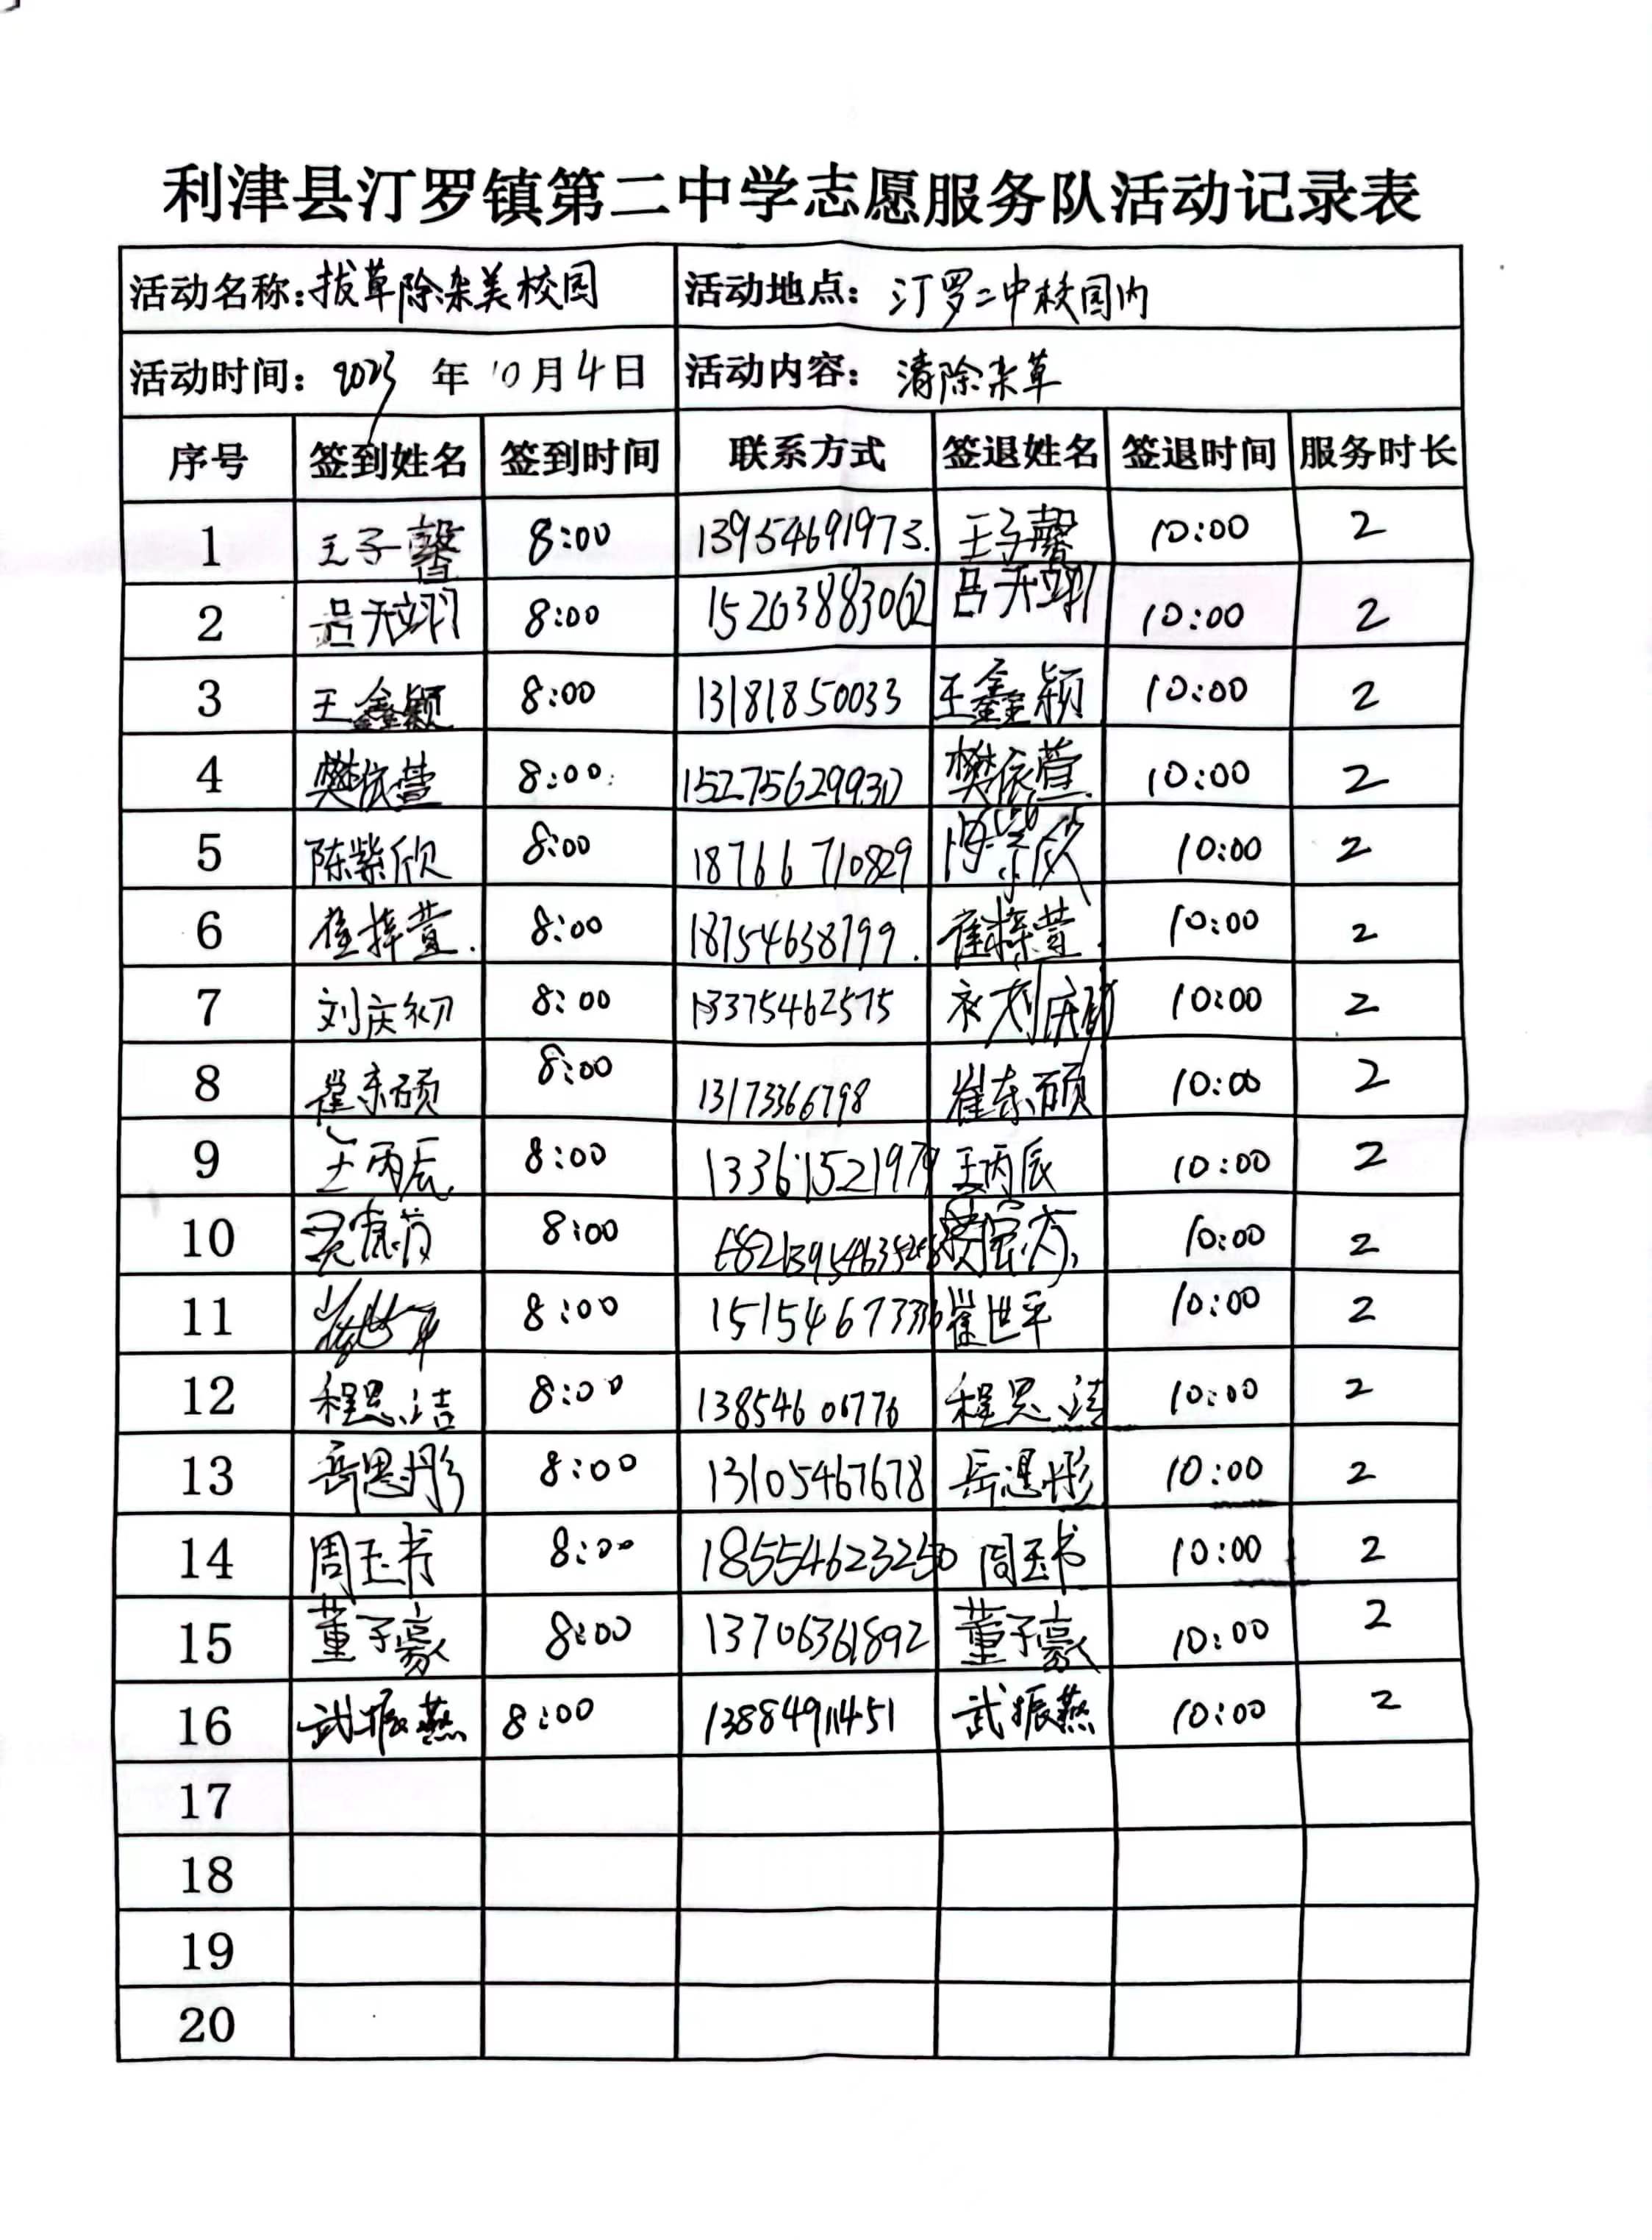 利津县汀罗镇第二中学志愿服务队活动记录表
活动名称：拔草除杂美校园 活动地点： 汀罗二中校园内
活动时间： 2023 年 10 月 4 日 活动内容： 清除杂草
序号 签到姓名 签到时间 联系方式 签退姓名 签退时间 服务时长
1 王子馨 8:00 13954691973. 王子馨 10:00 2
2 吕天翊 8:00 吕天翊 10:00 2
3 王鑫颖 8:00 13181850033 王鑫颖 10:00 2
4 樊依萱 8:00 15275629930 樊依萱 10:00 2
5 陈紫欣 8:00 18766710829 陈紫欣 10:00 2
6 崔梓萱. 8:00 18754638799. 崔梓萱. 10:00 2
7 8:00 13375462575 10:00 2
8 崔东硕 8:00 13173366798 崔东硕 10:00 2
9 王丙辰 8:00 13361521979 王丙辰 10:00 2
10 8:00 10:00 2
11 8:00 崔世平 10:00 2
12 程思洁 8:00 程思洁 10:00 2
13 岳思彤 8:00 13105467678 岳思彤 10:00 2
14 周玉书 8:00 18554623250 周玉书 10:00 2
15 董子豪 8:00 13706361892 董子豪 10:00 2
16 武振燕 8:00 13884911451 武振燕 10:00 2
17
18
19
20